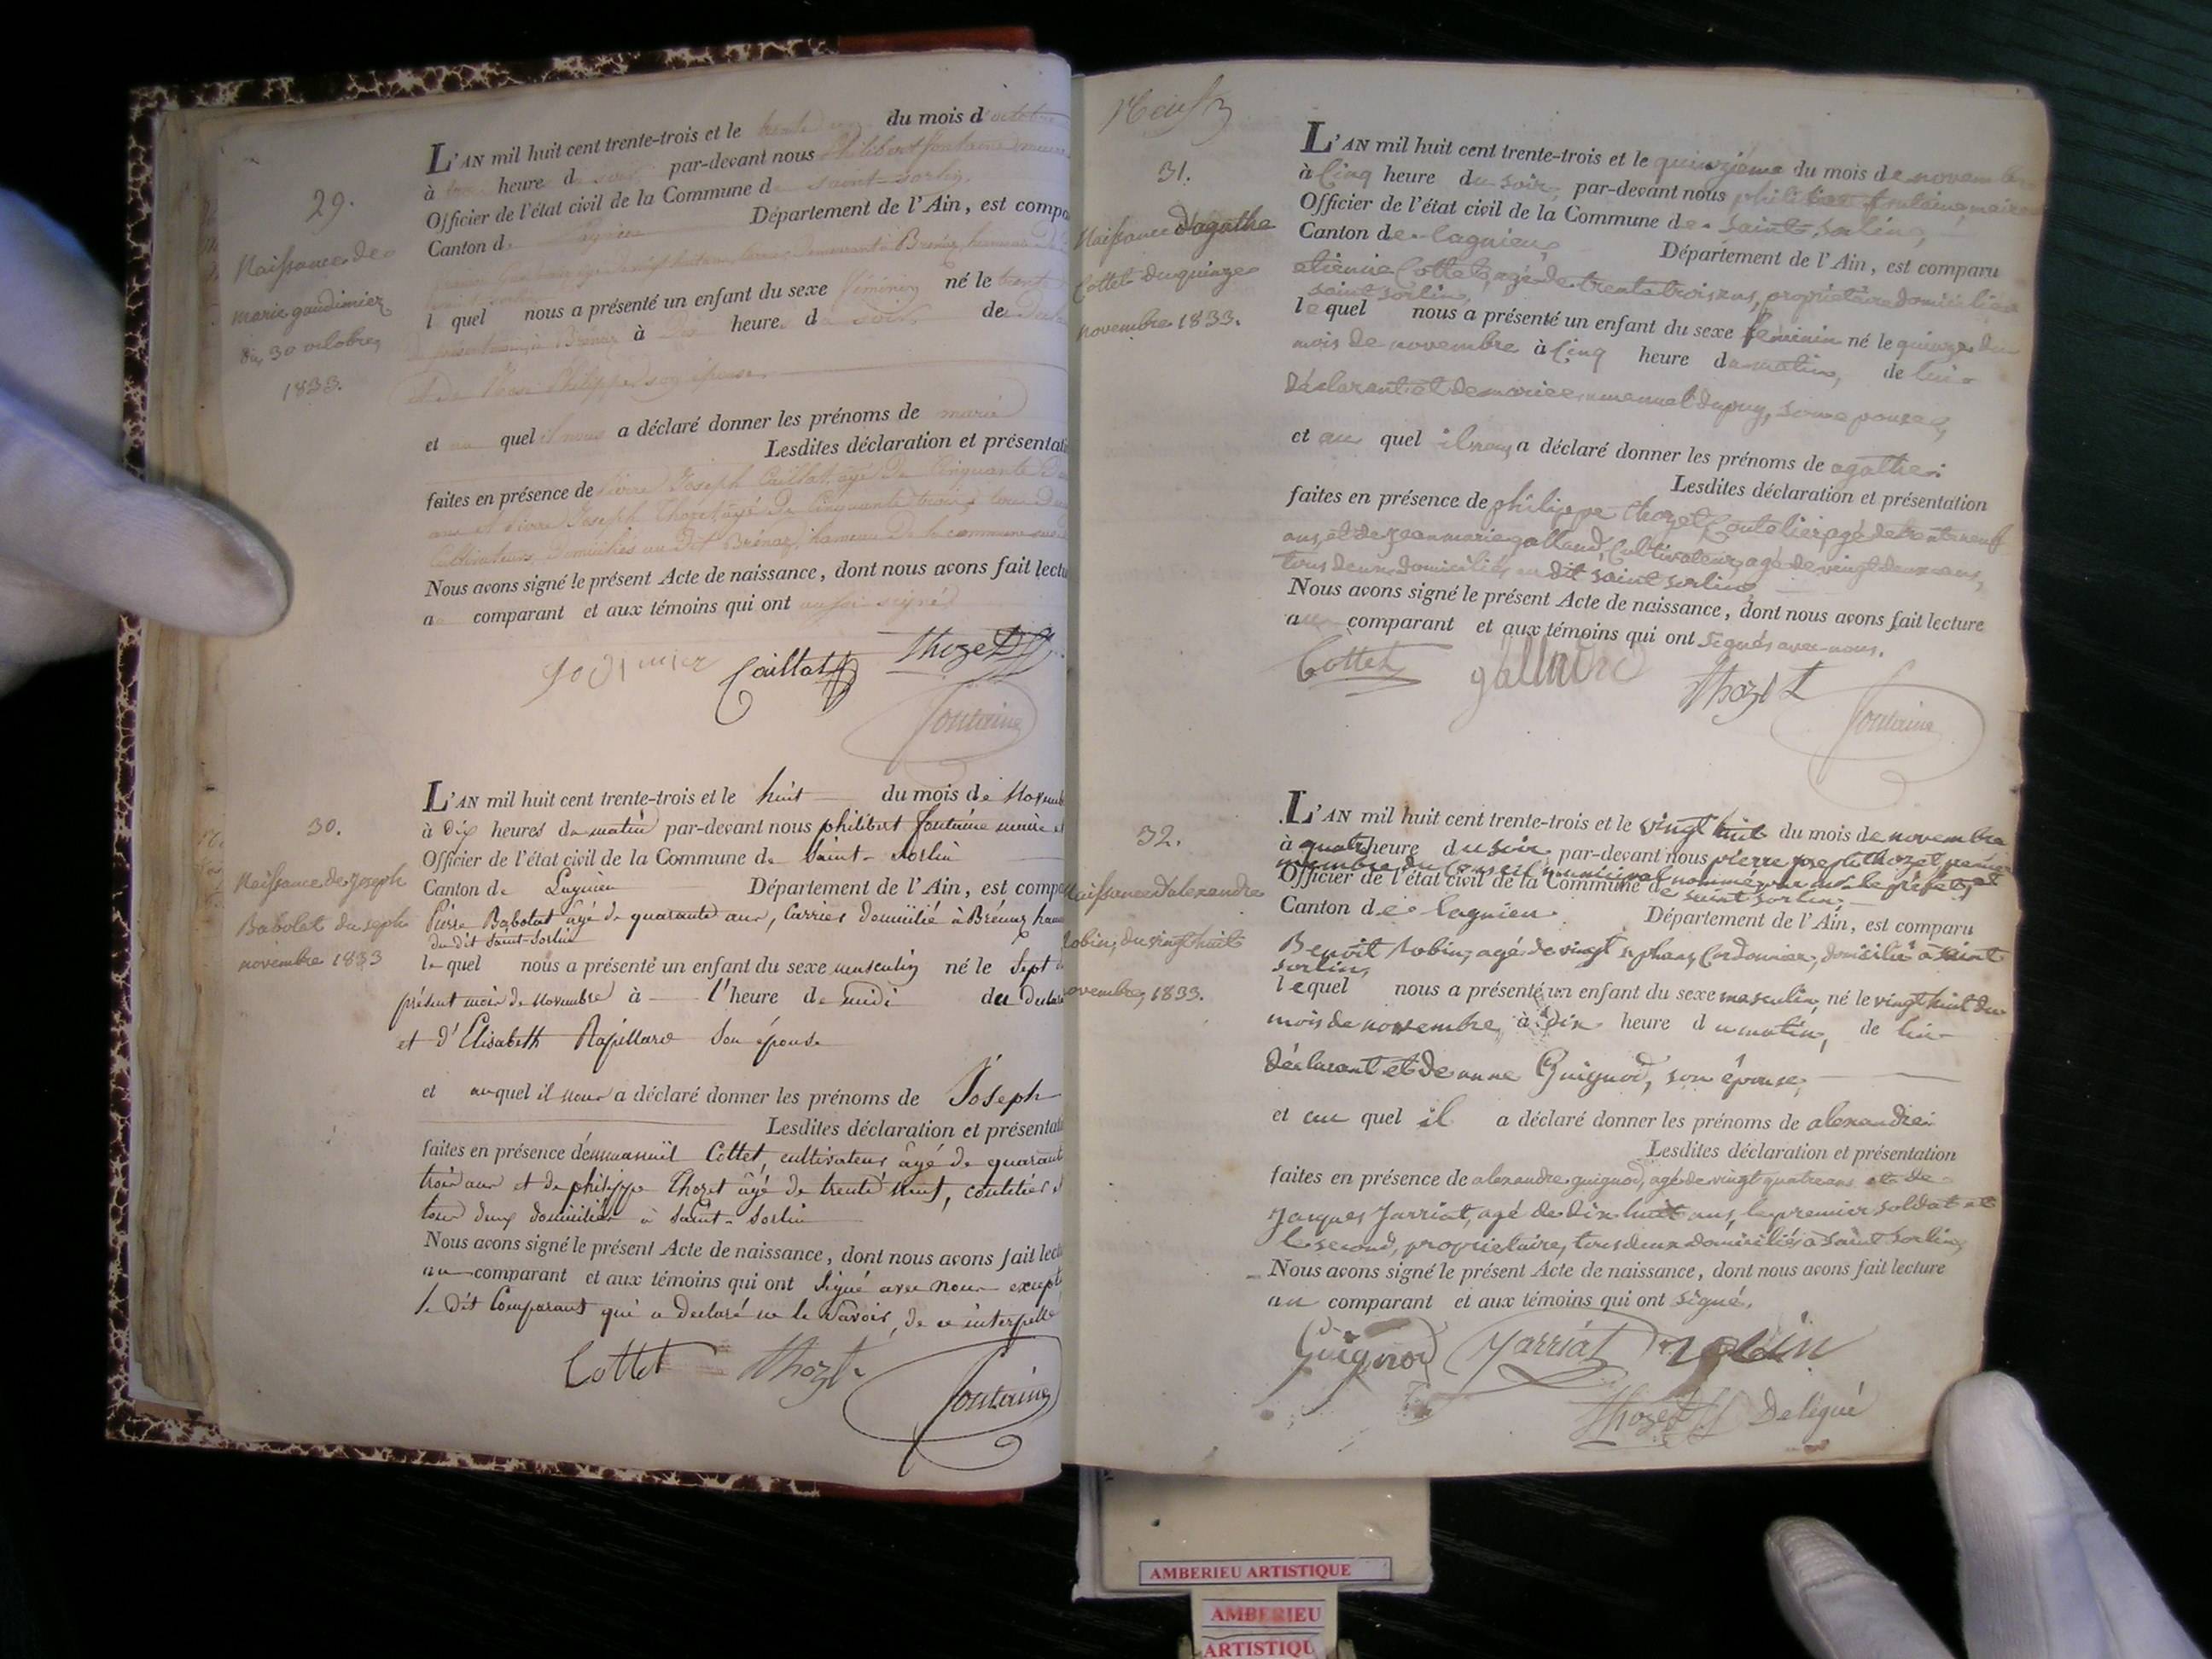 29.
Naissance de
marie gaudimier
du 30 octobre
1833.
L'AN mil huit cent trente-trois et le trente du mois d'octobre
à heure du soir par-devant nous Philibert fontaine
Officier de l'état civil de la Commune de saint-sorlin
Canton de Lagnieu Département de l'Ain, est compa
lequel nous a présenté un enfant du sexe féminin né le trente
à heure du soir de
et de Rose Philippe son épouse
et au quel il nous a déclaré donner les prénoms de marie
Lesdites déclaration et présentati
faites en présence de Pierre Joseph Caillat, agé de cinquante
ans et Pierre Joseph Thozet agé de cinquante trois, tous deux
Cultivateurs, domiciliés au dit Brénaz, hameau de la commune
Nous avons signé le présent Acte de naissance, dont nous avons fait lectu
au comparant et aux témoins qui ont aussi signé
Caillat Thozet
fontaine
30.
Naissance de joseph
Babolat du sept
novembre 1833
L'AN mil huit cent trente-trois et le huit du mois de Novemb
à dix heures du matin par-devant nous philibert fontaine maire et
Officier de l'état civil de la Commune de Saint-Sorlin
Canton de Lagnieu Département de l'Ain, est compa
Pierre Babolat agé de quarante ans, Carrier domicilié à Brénaz ham
du dit Saint-Sorlin
lequel nous a présenté un enfant du sexe masculin né le Sept
présent mois de Novembre à l'heure de midi du Declar
et d'Elisabeth Rapillard Son épouse
et auquel il nous a déclaré donner les prénoms de Joseph
Lesdites déclaration et présentati
faites en présence d'emmanuël Cottet, cultivateur âgé de quarante
trois ans et de philippe Thozet âgé de trente neuf, coutelier
tous deux domiciliés à Saint-Sorlin
Nous avons signé le présent Acte de naissance, dont nous avons fait lect
au comparant et aux témoins qui ont Signé avec nous excepté
le dit Comparant qui a declaré ne le Savoir, de ce interpellé
Cottet Thozet
fontaine
31.
Naissance d'agathe
Cottet du quinze
novembre 1833.
L'AN mil huit cent trente-trois et le quinzième du mois de novembre
à Cinq heure du soir, par-devant nous philibert fontaine, maire
Officier de l'état civil de la Commune de saint sorlin,
Canton de lagnieu, Département de l'Ain, est comparu
etienne Cottet, agé de trente trois ans, propriétaire domicilié
saint sorlin,
lequel nous a présenté un enfant du sexe féminin né le quinze du
mois de novembre à Cinq heure du matin, de lui
déclarant et de marie emmanuel dupuy, son epouse,
et au quel il nous a déclaré donner les prénoms de agathe.
Lesdites déclaration et présentation
faites en présence de philippe thozet, Coutelier, agé de trente neuf
ans, et de jean marie galland, Cultivateur, agé de vingt deux ans,
tous deux domiciliés au dit saint sorlin,
Nous avons signé le présent Acte de naissance, dont nous avons fait lecture
au comparant et aux témoins qui ont signés avec nous.
Cottet galland Thozet
fontaine
32.
Naissance d'alexandre
robin, du vingt huit
novembre, 1833.
L'AN mil huit cent trente-trois et le vingt huit du mois de novembre
à quatre heure du soir, par-devant nous pierre joseph thozet, premier
membre du Conseil municipal nommé par mr. le préfet, et
Officier de l'état civil de la Commune de saint sorlin.
Canton de lagnieu. Département de l'Ain, est comparu
Benoit robin, agé de vingt sept ans, Cordonnier, domicilié à saint
sorlin,
lequel nous a présenté un enfant du sexe masculin, né le vingt huit du
mois de novembre, à dix heure du matin, de lui
déclarant et de anne Guignod, son épouse,
et au quel il a déclaré donner les prénoms de alexandre.
Lesdites déclaration et présentation
faites en présence de alexandre guignod, agé de vingt quatre ans et de
Jacques Jarriat, agé de dix huit ans, le premier soldat et
le second, propriétaire, tous deux domiciliés à saint sorlin,
Nous avons signé le présent Acte de naissance, dont nous avons fait lecture
au comparant et aux témoins qui ont signé.
Guignod Jarriat robin
Thozet Delégué
AMBERIEU ARTISTIQUE
AMBERIEU
ARTISTIQU